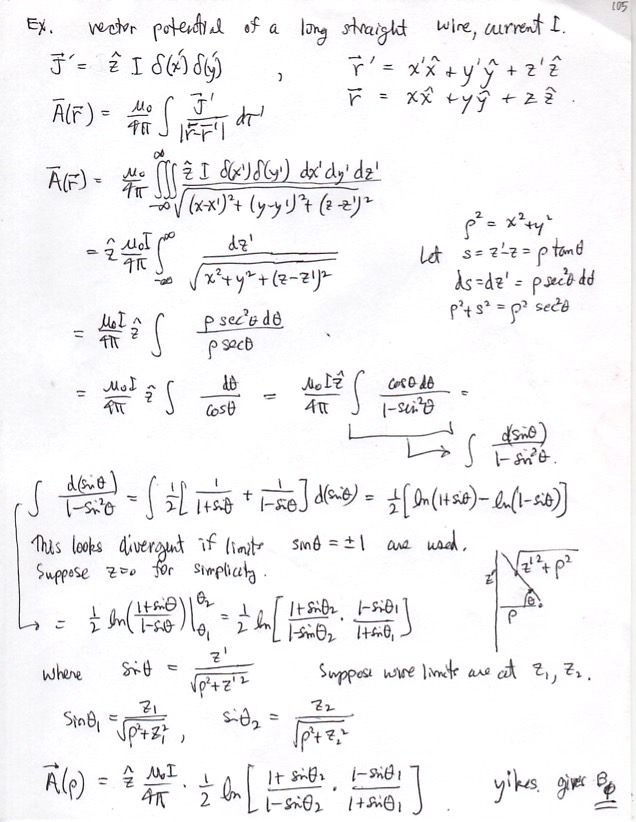 105
Ex. vector potential of a long straight wire, current I.
J⃗′ = ẑ I δ(x′) δ(y′) , r⃗′ = x′x̂ + y′ŷ + z′ẑ
A⃗(r⃗) = μ₀/4π ∫ J⃗′/|r⃗-r⃗′| dτ′ r⃗ = xx̂ + yŷ + zẑ.
A⃗(r⃗) = μ₀/4π ∭_{-∞}^{∞} ẑ I δ(x′)δ(y′) dx′dy′dz′ / √((x-x′)² + (y-y′)² + (z-z′)²)
ρ² = x²+y²
= ẑ μ₀I/4π ∫_{-∞}^{∞} dz′ / √(x²+y²+(z-z′)²) Let s = z′-z = ρ tanθ
ds = dz′ = ρ sec²θ dθ
ρ²+s² = ρ² sec²θ
= μ₀I/4π ẑ ∫ ρ sec²θ dθ / ρ secθ .
= μ₀I/4π ẑ ∫ dθ/cosθ = μ₀Iẑ/4π ∫ cosθ dθ / 1-sin²θ =
∫ d(sinθ) / 1-sin²θ.
∫ d(sinθ)/1-sin²θ = ∫ ½[ 1/1+sinθ + 1/1-sinθ ] d(sinθ) = ½[ln(1+sinθ) - ln(1-sinθ)]
This looks divergent if limits sinθ = ±1 are used.
Suppose z=0 for simplicity.
z′ √z′²+ρ² θ ρ
= ½ ln(1+sinθ/1-sinθ)|_{θ₁}^{θ₂} = ½ ln[ 1+sinθ₂/1-sinθ₂ · 1-sinθ₁/1+sinθ₁ ]
where sinθ = z′/√(ρ²+z′²) Suppose wire limits are at z₁, z₂.
sinθ₁ = z₁/√(ρ²+z₁²) , sinθ₂ = z₂/√(ρ²+z₂²)
A⃗(ρ) = ẑ μ₀I/4π · ½ ln[ 1+sinθ₂/1-sinθ₂ · 1-sinθ₁/1+sinθ₁ ] . yikes. gives B_φ